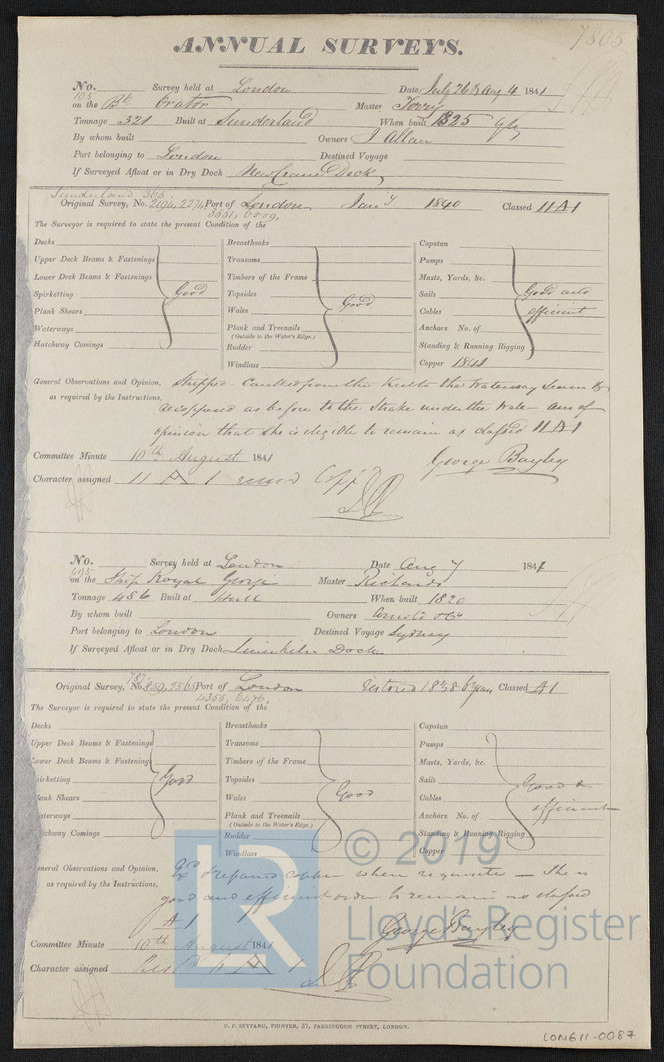 ANNUAL SURVEYS.
7805
No. 103 Survey held at London Date July 26 & Aug 4 1841
on the Bk Orator Master Terry
Tonnage 321 Built at Sunderland When built 1825
By whom built Owners J Allan
Port belonging to London Destined Voyage
If Surveyed Afloat or in Dry Dock New Crane Dock
Sunderland 365.
Original Survey, No. 2194, 2274, Port of London Jany 1840 Classed 11 A 1
5551, 6009,
The Surveyor is required to state the present Condition of the
Decks Breasthooks Capstan
Upper Deck Beams & Fastenings Transoms Pumps
Lower Deck Beams & Fastenings Timbers of the Frame Masts, Yards, &c.
Spirketting Good Topsides Sails Good and
Plank Shears Wales Good Cables efficient
Waterways Plank and Treenails Anchors No. of
(Outside to the Water's Edge.)
Hatchway Comings Rudder Standing & Running Rigging
Windlass Copper 1841
General Observations and Opinion, Stripped. Caulked from the Keel to the Waterway Seam &
as required by the Instructions, recoppered as before to the Strake under the Wale – am of
opinion that she is eligible to remain as classed 11 A 1
George Bayley
Committee Minute 10th August 1841
Character assigned 11 A 1
No. 495 Survey held at London Date Aug 7 1841
on the Ship Royal George Master Richards
Tonnage 486 Built at Hull When built 1820
By whom built Owners Arnold & Co
Port belonging to London Destined Voyage Sydney
If Surveyed Afloat or in Dry Dock Limekiln Dock
Original Survey, No. 859, 2363 Port of London Restored 1838 6 years, Classed A 1
4355, 6476,
The Surveyor is required to state the present Condition of the
Decks Breasthooks Capstan
Upper Deck Beams & Fastenings Transoms Pumps
Lower Deck Beams & Fastenings Timbers of the Frame Masts, Yards, &c.
pirketting Good Topsides Sails Good &
lank Shears Wales Good Cables efficient
aterways Plank and Treenails Anchors No. of
(Outside to the Water's Edge.)
tchway Comings Rudder Standing & Running Rigging
Windlass Copper
eneral Observations and Opinion, repaired copper when requisite – She is
as required by the Instructions, good and efficient order to remain as classed
A 1
George Bayley
Committee Minute 10th August 1841
Character assigned A 1
C. F. SEYFANG, PRINTER, 57, FARRINGDON STREET, LONDON.
LON611-0087
LR
© 2019
Lloyd's Register
Foundation